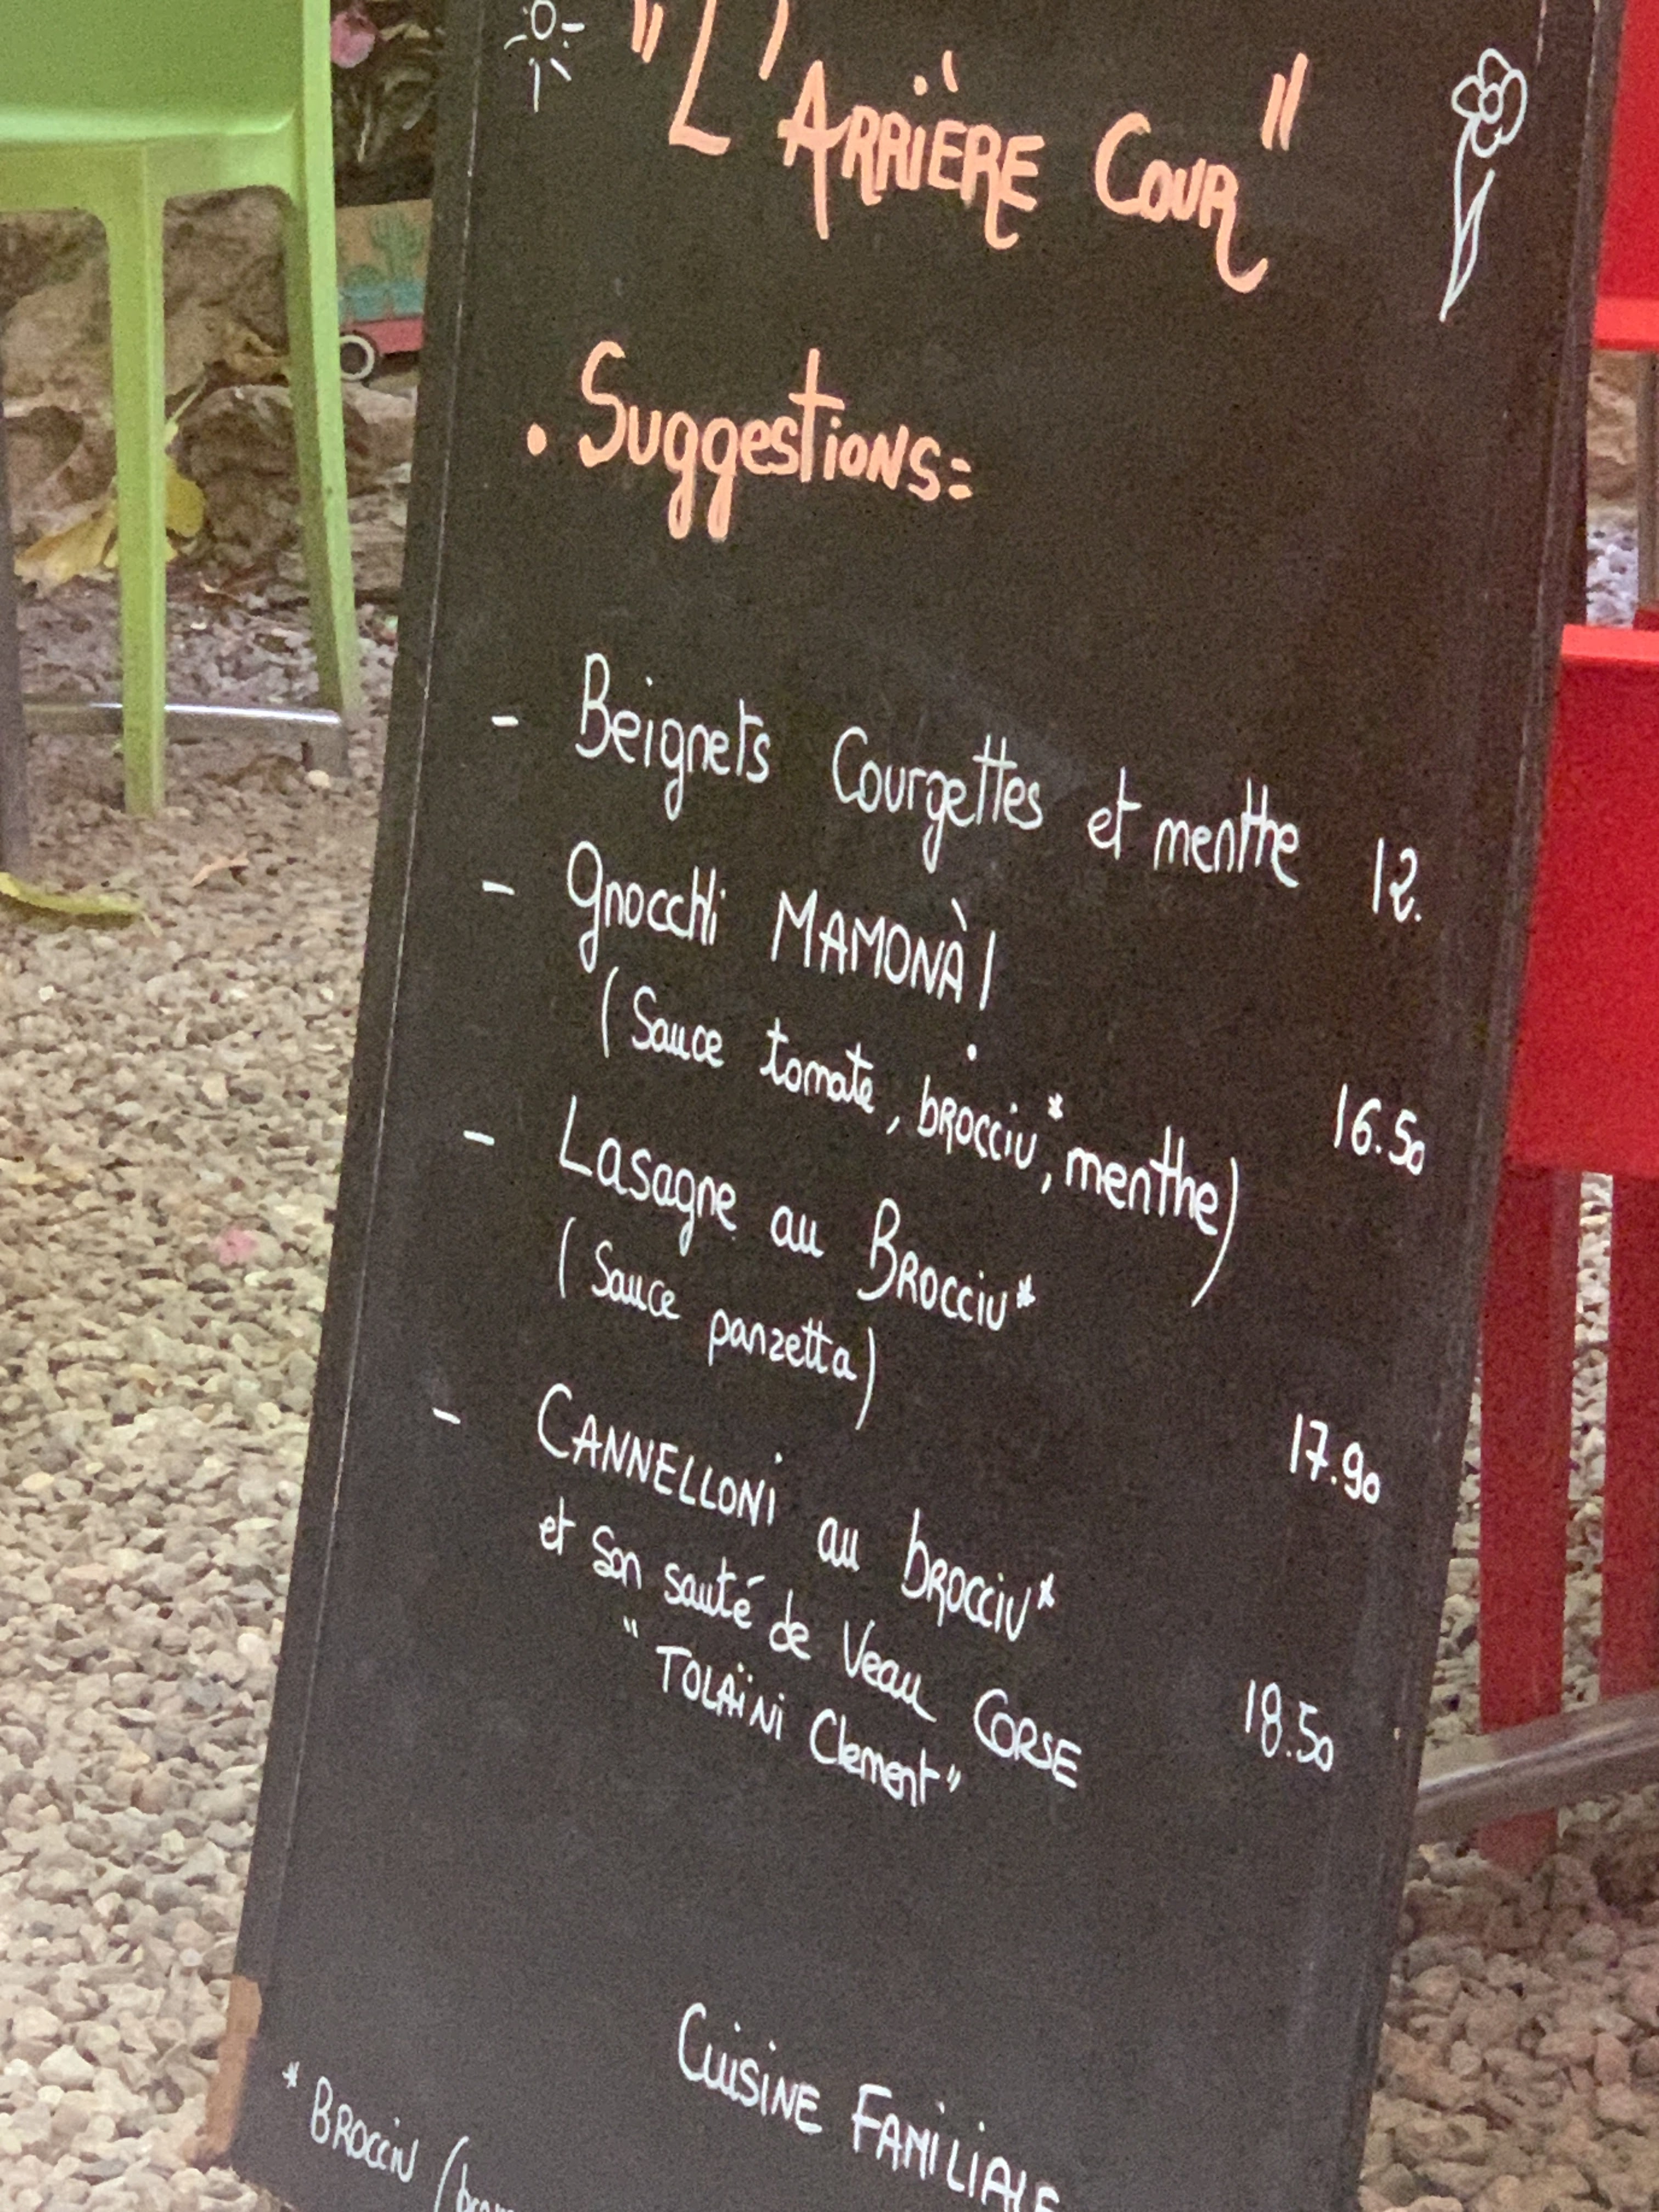 "L'ARRIÈRE COUR"
. Suggestions:
- Beignets Courgettes et menthe 12.
- Gnocchi MAMONÀ!
(Sauce tomate, brocciu*, menthe) 16.50
- Lasagne au Brocciu*
(Sauce panzetta) 17.90
- CANNELLONi au brocciu*
et son sauté de Veau CORSE 18.50
"TOLAÏNi Clement"
CUISINE FAMILIALE
* BROCCIU (